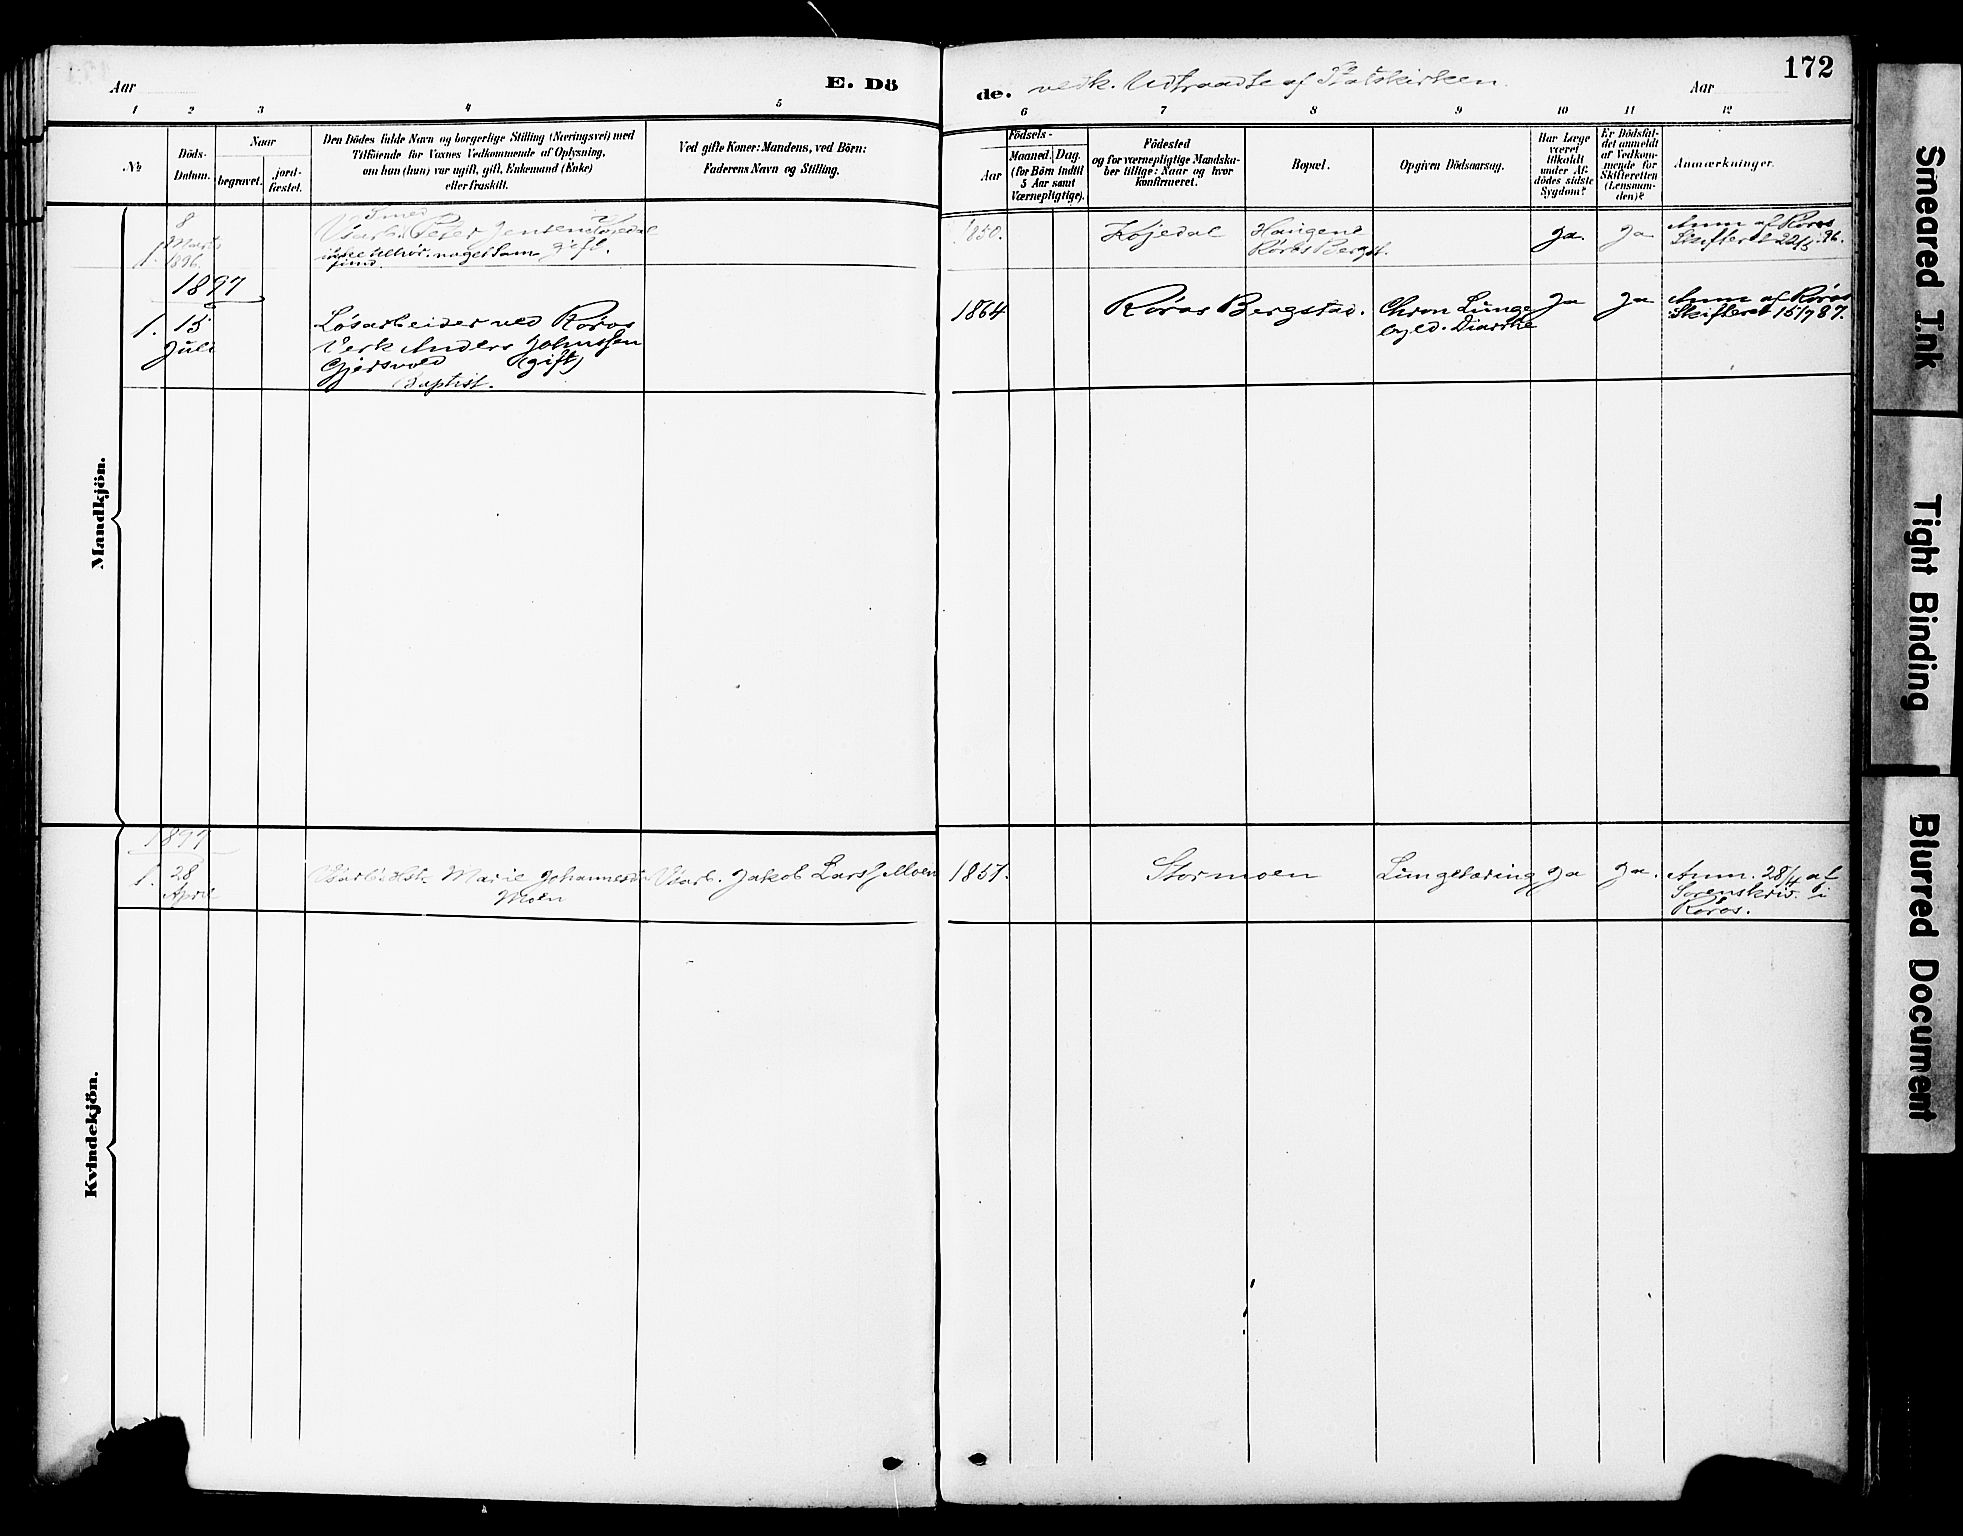 Aar
E. Dö
de. vedk. Udtraadte af Statskirken.
Aar
172
1 2 3 4 5 6 7 8 9 10 11 12
No
Döds-
Datum.
Naar
begravet.
jord-
fæstet.
Den Dödes fulde Navn og borgerlige Stilling (Næringsvei) med
Tilföiende for Voxnes Vedkommende af Oplysning,
om han (hun) var ugift, gift, Enkemand (Enke)
eller fraskilt.
Ved gifte Koner: Mandens, ved Börn:
Faderens Navn og Stilling.
Födsels-
Aar
Maaned. Dag.
(for Børn indtil
5 Aar samt
Værnepligtige).
Födested
og for værnepligtige Mandska-
ber tillige: Naar og hvor
konfirmeret.
Bopæl.
Opgiven Dödsaarsag.
Har Læge
været
tilkaldt
under Af-
dödes sidste
Sygdom?
Er Dödsfal-
det anmeldt
af Vedkom-
mende for
Skifteretten
(Lensman-
den)?
Anmærkninger.
Mandkjön.
1.
8
Marts
1896.
Smed
Peter Jensen
gift.
1850.
Haugen
Røros Bergst.
Ja.
Ja
Anm af Røros
Skifteret 22/5 96.
1897
1. 15
Juli
Løsarbeider ved Røros
Verk Anders Johnssen
Gjersvold (gift)
Baptist.
1864
Røros Bergstad.
Chron Lunge
Diarrhe
Ja
Ja
Anm af Røros
Skifteret 15/7 87.
Kvindekjön.
1.
28
April
Marie Johannesd.
Moen
Jakob Larss. Moen
1857.
Stormoen
Lungetæring
Ja
Ja.
Anm. 28/4 af
Sorenskriv. i
Røros.
Smeared Ink
Tight Binding
Blurred Document